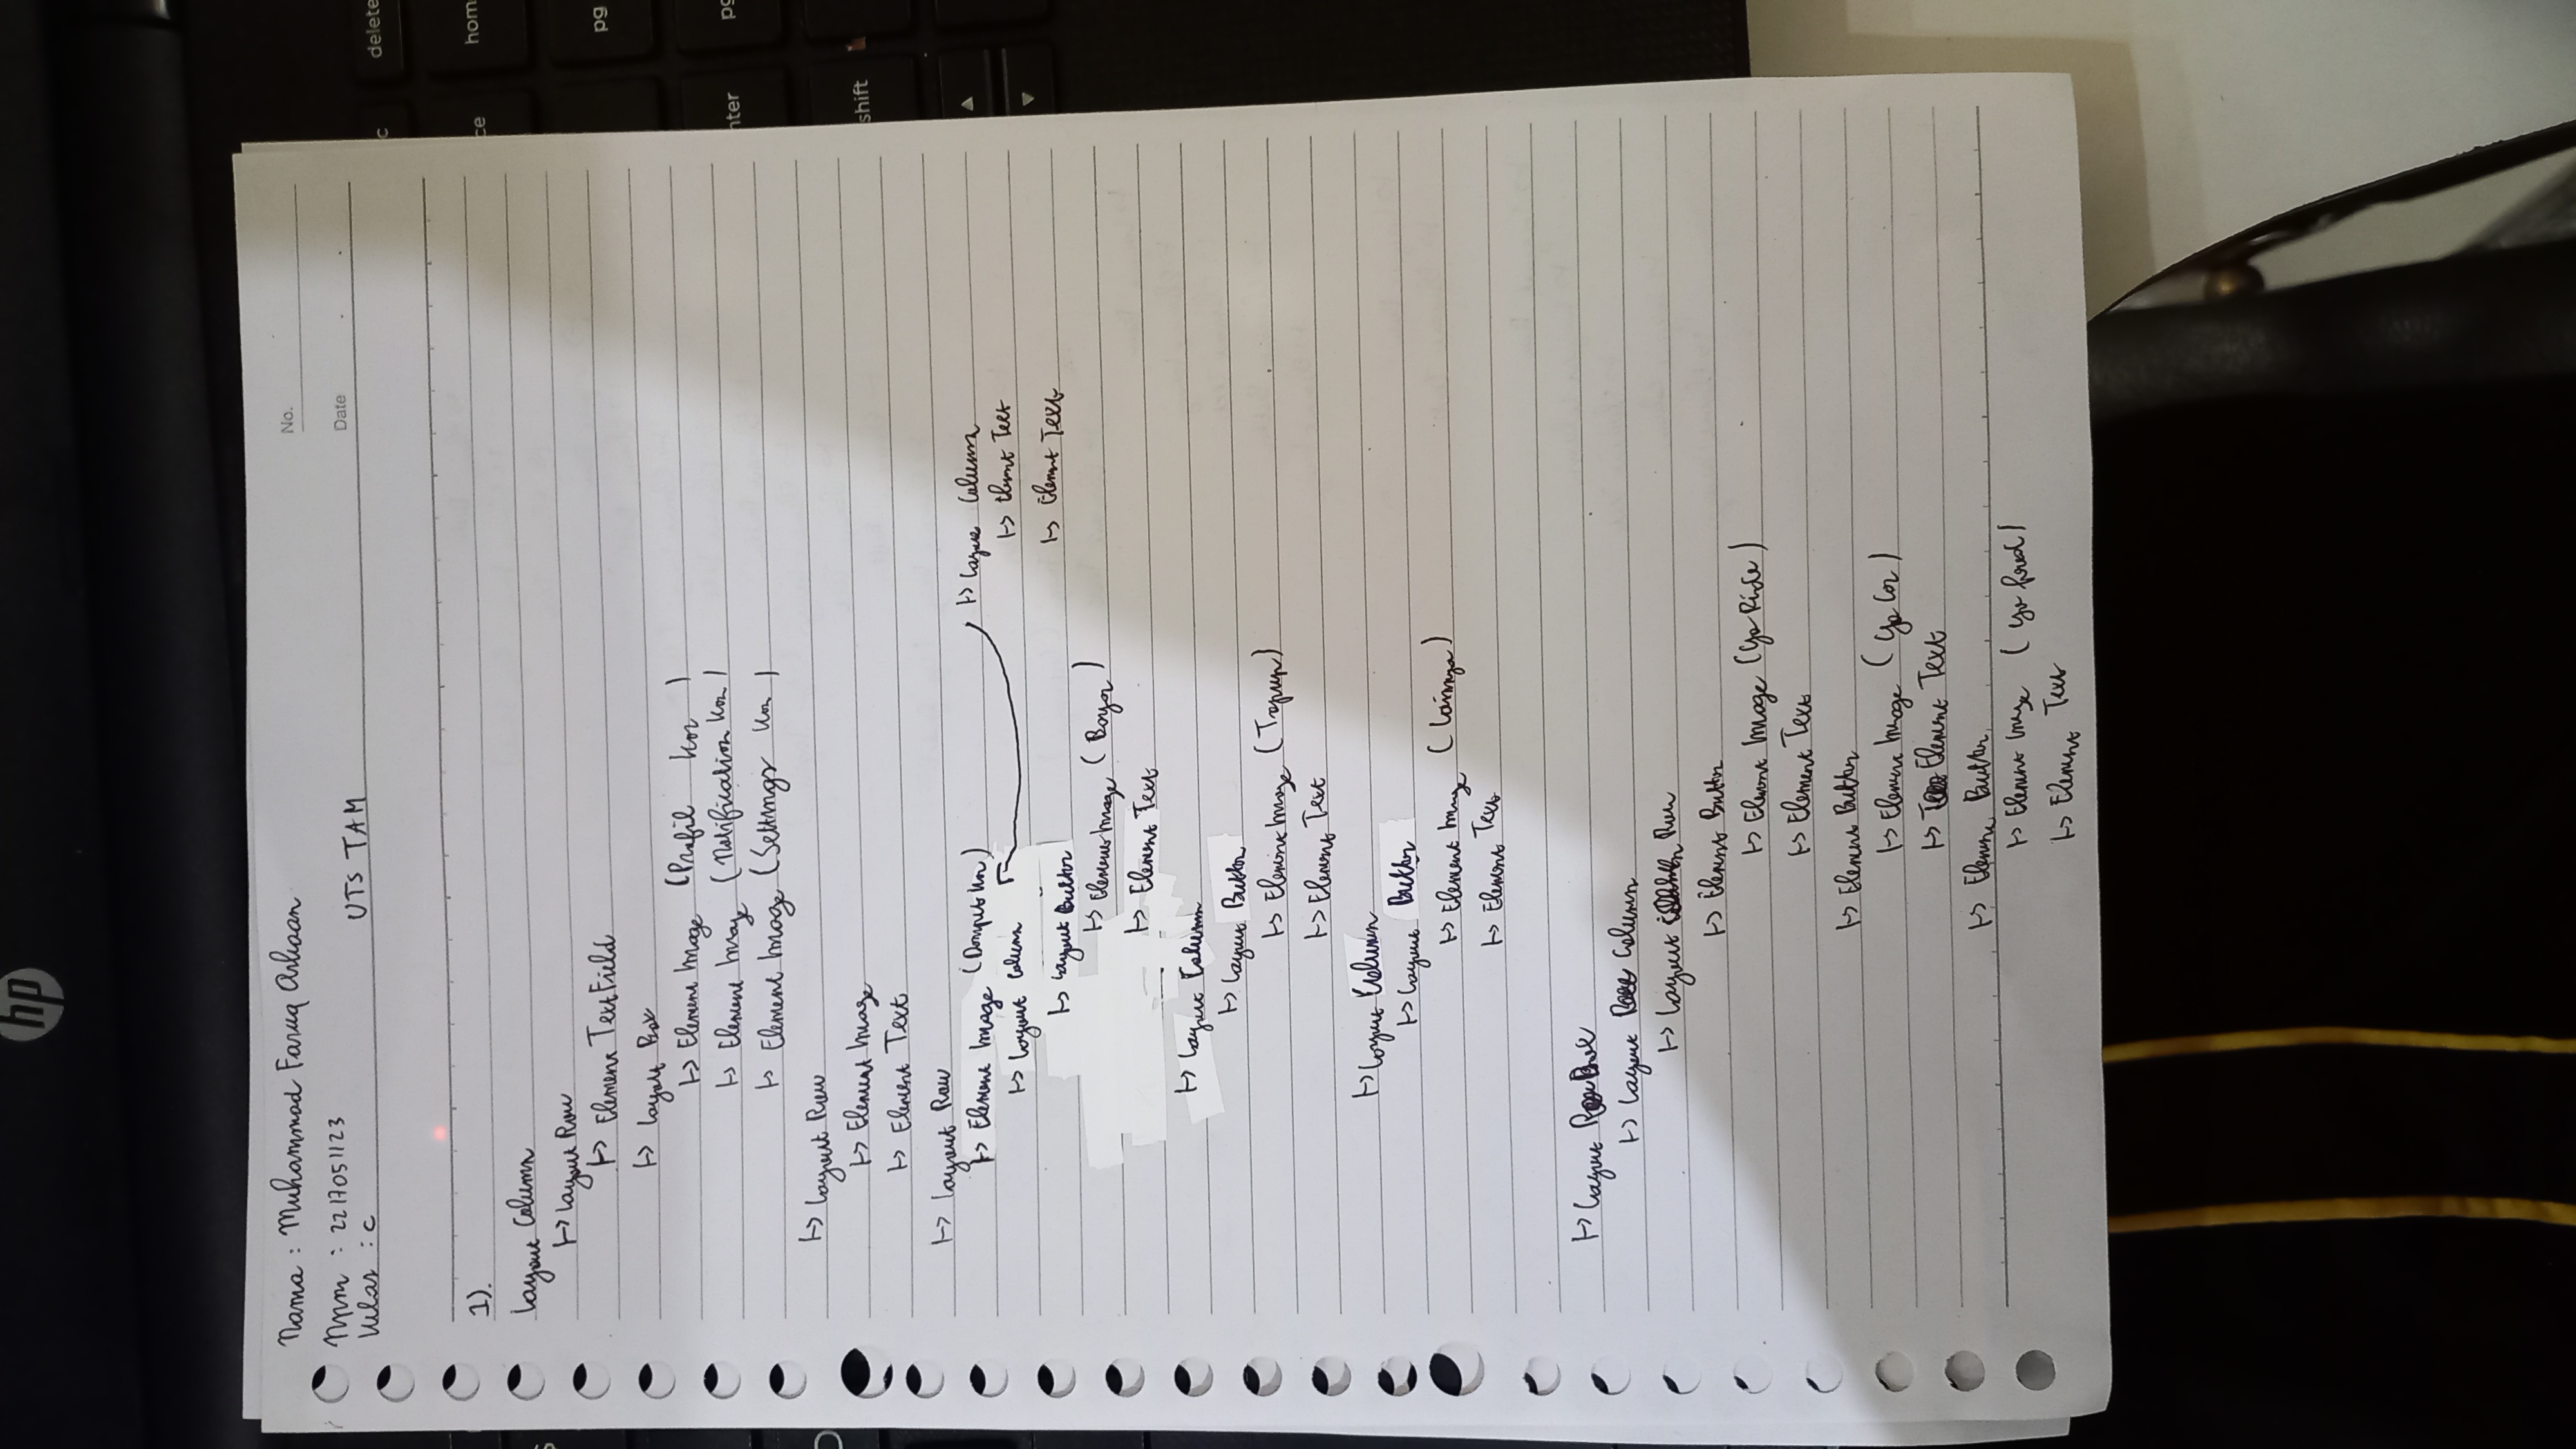 hp
Nama : Muhammad Faruq Arhaan
No.
Npm : 2217051123
Date
Kelas : C
UTS TAM
delete
home
1).
Layout Column
↦ Layout Row
↦ Element TextField
pg
↦ Layout Box
↦ Element Image (Profil Icon)
↦ Element Image (Notification Icon)
↦ Element Image (Settings Icon)
↦ Layout Row
↦ Element Image
shift
↦ Element Text
↦ Layout Row
↦ Element Image (Dompet Icon)
↦ Layout Column
↦ Element Text
↦ Element Text
↦ Layout Column
↦ Layout Button
↦ Element Image (Bayar)
↦ Element Text
↦ Layout Column
↦ Layout Button
↦ Element Image (Topup)
↦ Element Text
↦ Layout Column
↦ Layout Button
↦ Element Image (Lainnya)
↦ Element Text
↦ Layout Box
↦ Layout Column
↦ Layout Row
↦ Element Button
↦ Element Image (Go Ride)
↦ Element Text
↦ Element Button
↦ Element Image (Go Car)
↦ Element Text
↦ Element Button
↦ Element Image (Go food)
↦ Element Text